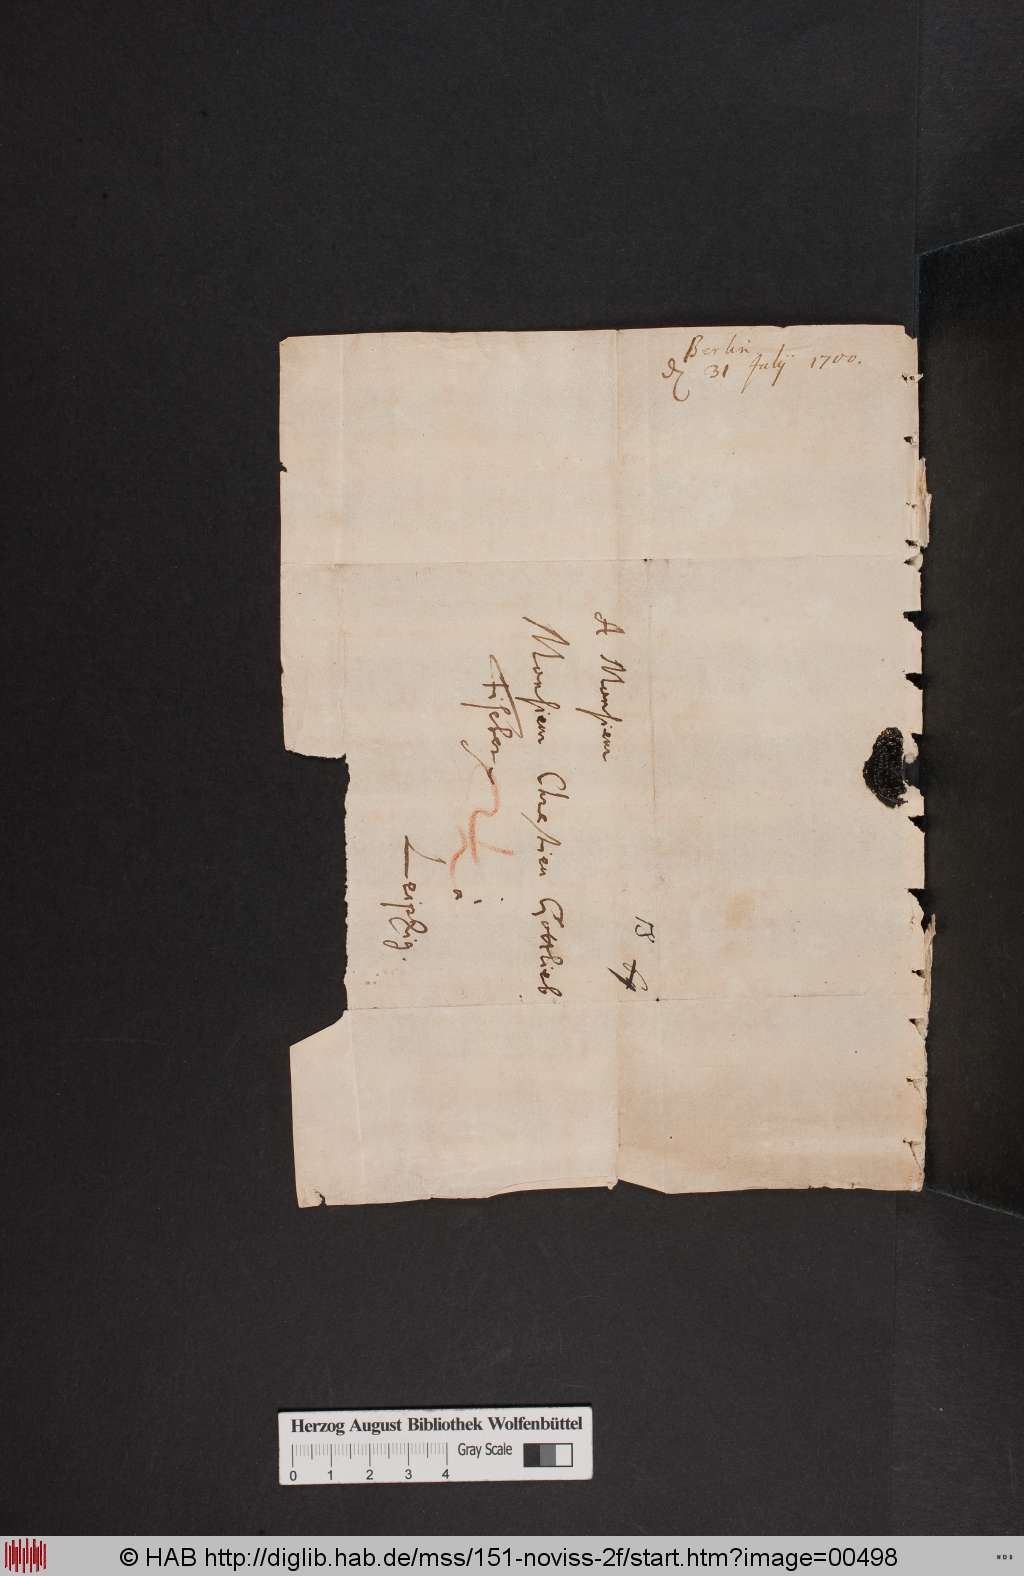 Berlin
d 31 Julÿ 1700.
A Monsieur
Monsieur Chrestien Gottlieb
Fischer
à
Leipzig.
Herzog August Bibliothek Wolfenbüttel
Gray Scale
0 1 2 3 4
© HAB http://diglib.hab.de/mss/151-noviss-2f/start.htm?image=00498